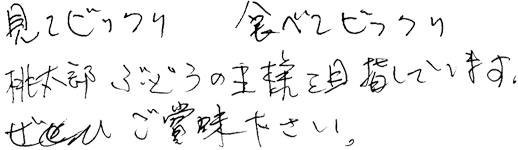 見てビックリ　食べてビックリ
桃太郎ぶどうの王様を目指しています。
ぜひご賞味下さい。